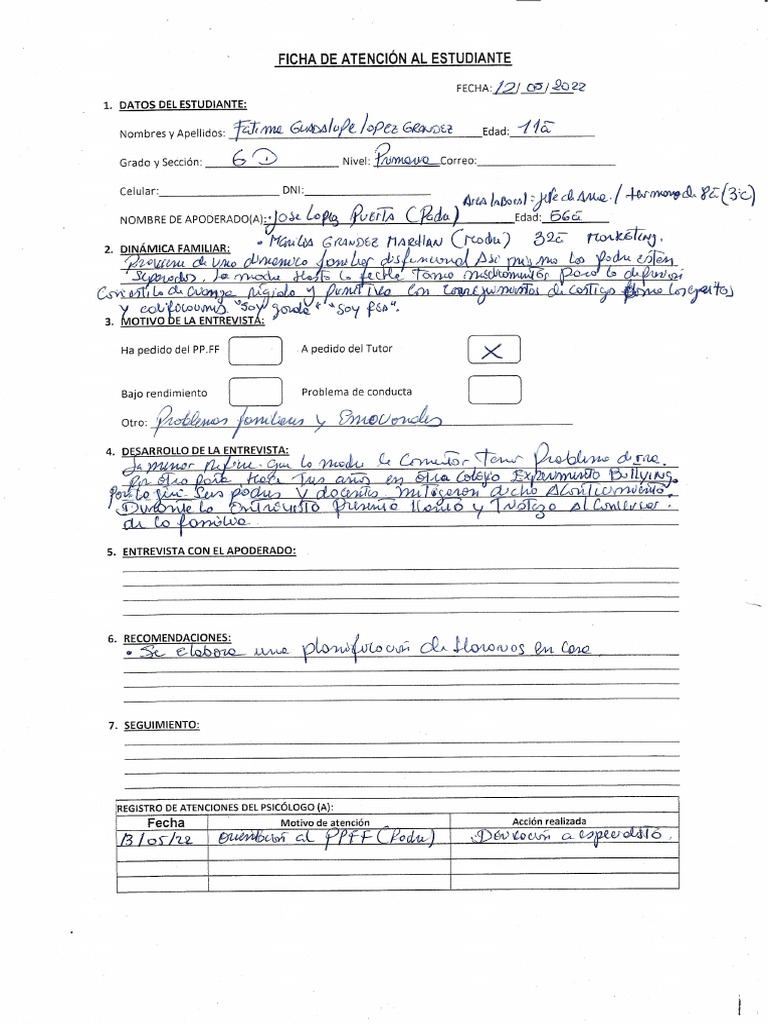 FICHA DE ATENCIÓN AL ESTUDIANTE
FECHA: 12/05/2022
1. DATOS DEL ESTUDIANTE:
Nombres y Apellidos: Fátima Guadalupe Lopez Grandez Edad: 11ā
Grado y Sección: 6 D Nivel: Primaria Correo:
Area laboral = Jefe de Area / hermano de 8ā (3°C)
Celular: DNI:
NOMBRE DE APODERADO(A): • Jose Lopez Puerta (Padre) Edad: 56ā
• Grandez (Madre) 32ā Marketing.
2. DINÁMICA FAMILIAR:
Proviene de una dinámica familiar disfuncional Asi mismo los padres están
separados. La madre Hasta la fecha toma medicamentos para la depresión
Con estilo de crianza rígido y punitiva con de castigo como los gritos
y "soy gorda" "soy fea".
3. MOTIVO DE LA ENTREVISTA:
Ha pedido del PP.FF A pedido del Tutor X
Bajo rendimiento Problema de conducta
Otro: Problemas familiares y Emocionales
4. DESARROLLO DE LA ENTREVISTA:
La menor refiere que la madre le comenta tener Problema de
Por otro parte, Hace tres años en otra colegio Experimento Bullying,
por lo que sus padres y docentes mitigaron dicho Acontecimiento.
Durante la Entrevista presento llanto y Tristeza Al conversar
de la familia
5. ENTREVISTA CON EL APODERADO:
6. RECOMENDACIONES:
• Se elabora una planificación de Horarios en casa
7. SEGUIMIENTO:
REGISTRO DE ATENCIONES DEL PSICÓLOGO (A):
Fecha Motivo de atención Acción realizada
13/05/22 Orientación al PPFF (Padre) Derivación a especialista.